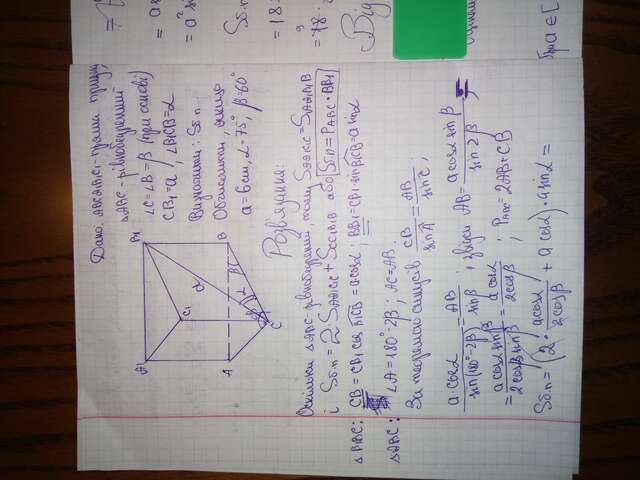 Дано: ABCA1B1C1 - пряма призма,
△ABC - рівнобедрений
∠C=∠B=β (при основі)
CB1=a, ∠B1CB=α
Визначити: Sб.п.
Обчислити, якщо
a=6см, α=75°, β=60°
A1
B1
C1
α
A
B
β
α
β
C
Розв'язання:
Оскільки △ABC-рівнобедрений, тому SAA1C1C=SAA1B1B
і Sб.п.=2·SAA1C1C+SCC1B1B або Sб.п.=PABC·BB1
△B1BC: CB=CB1 cos B1CB=a cosα; BB1=CB1·sin B1CB=a sinα
△ABC: ∠A=180°-2β; AC=AB.
За теоремою синусів CB/sinA=AB/sinC;
a·cosα/sin(180°-2β)=AB/sinβ; звідси AB=a cosα sinβ/sin2β=
=a cosα sinβ/2cosβ sinβ=a cosα/2cosβ; PABC=2AB+CB
Sб.п=(2·a cosα/2cosβ+a cosα)·a sinα=
= a
= a²
Sб.п
=18
9
=78.
Big
при a∈[